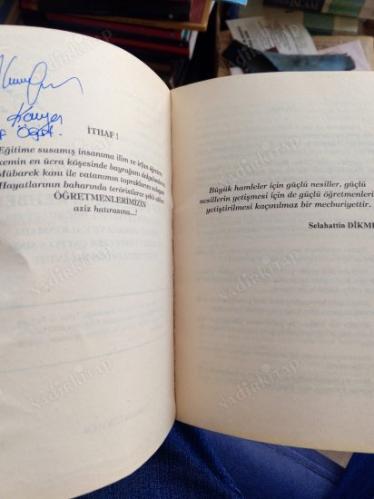 İTHAF!
Eğitime susamış insanıma ilim ve irfan
en ücra köşesinde bayrağını
Mübarek kanı ile vatanımın topraklarını
Hayatlarının baharında teröristlerce şehit edilen
ÖĞRETMENLERİMİZİN
aziz hatırasına...!
Büyük hamleler için güçlü nesiller, güçlü
nesillerin yetişmesi için de güçlü öğretmenleri
yetiştirilmesi kaçınılmaz bir mecburiyettir.
Selahattin DİKME
yadigkitap